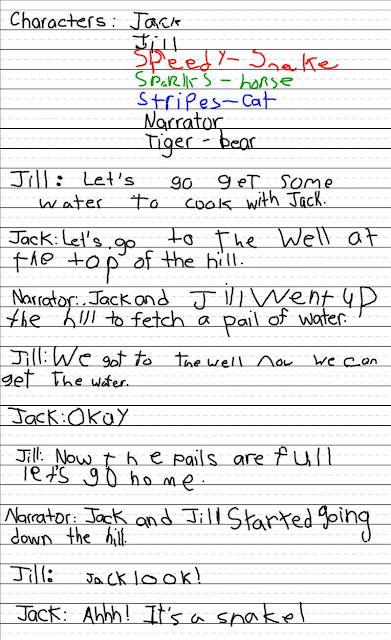 Characters: Jack
Jill
Speedy-Snake
Sparkls-horse
Stripes-Cat
Narrator
Tiger-bear
Jill: Let's go get some
water to cook with Jack.
Jack: Let's go to the well at
the top of the hill.
Narrator: Jack and Jill Went up
the hill to fetch a pail of water.
Jill: We got to the well now we can
get the water.
Jack: Okay
Jill: Now the pails are full
let's go home.
Narrator: Jack and Jill Started going
down the hill.
Jill: Jack look!
Jack: Ahhh! It's a snake!